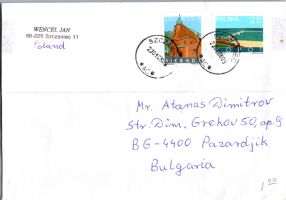 WENCEL JAN
66-225 Szczaniec 11
Poland
POLSKA
SIERADZ
Mr. Atanas Dimitrov
Str. Dim. Grekov 50, ap.9
BG-4400 Pazardjik
Bulgaria
1.00